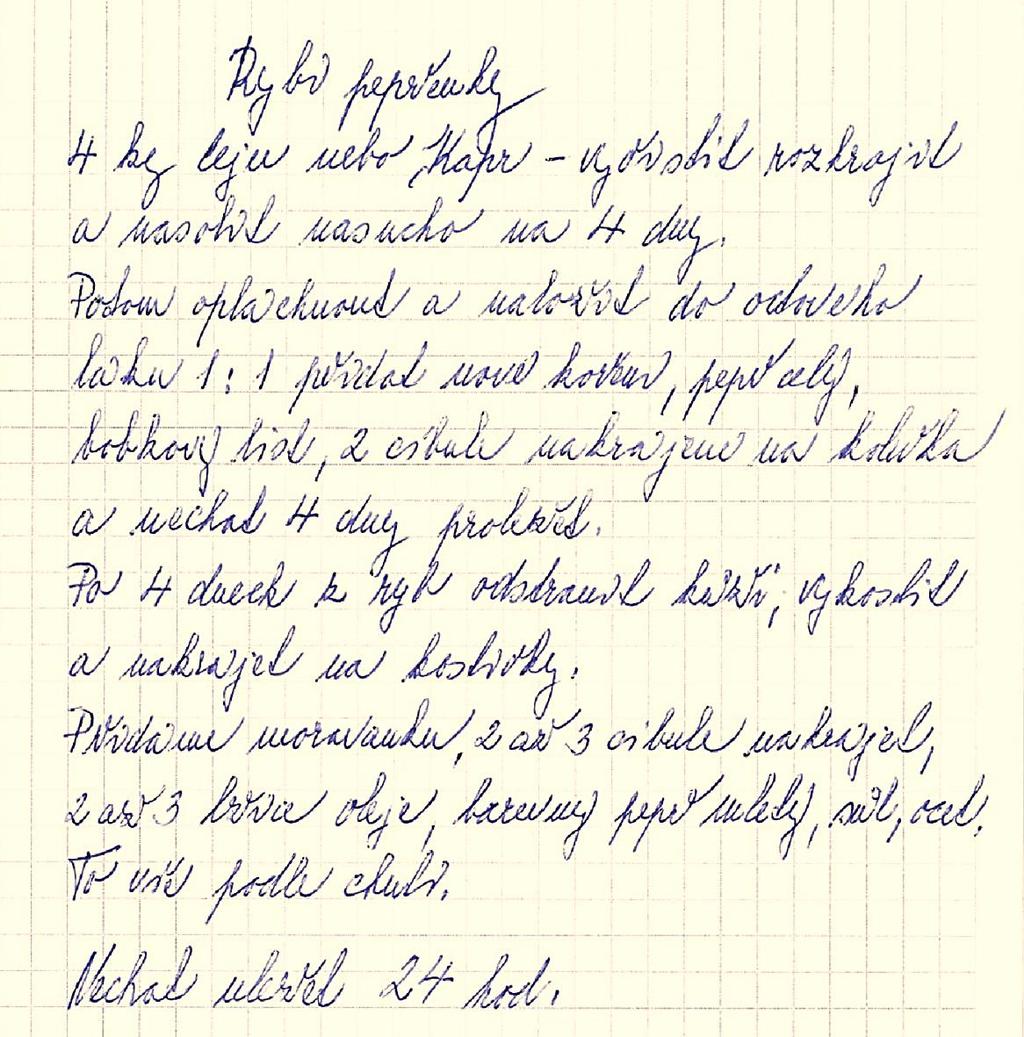 Rybí pepřenky
4 kg leju nebo Kapr - vyčistit rozkrojit
a nasolit nasucho na 4 dny.
Potom opláchnout a naložit do octového
láku 1:1 přidat nové koření, pepř celý,
bobkový list, 2 cibule nakrájené na kolečka
a nechat 4 dny proležet.
Po 4 dnech z ryb odstranit kůži, vykostit
a nakrájet na kostičky.
Přidáme moravanku, 2 až 3 cibule nakrájet,
2 až 3 lžíce oleje, barevný pepř mletý, sůl, ocet.
To vše podle chuti.
Nechat uležet 24 hod.